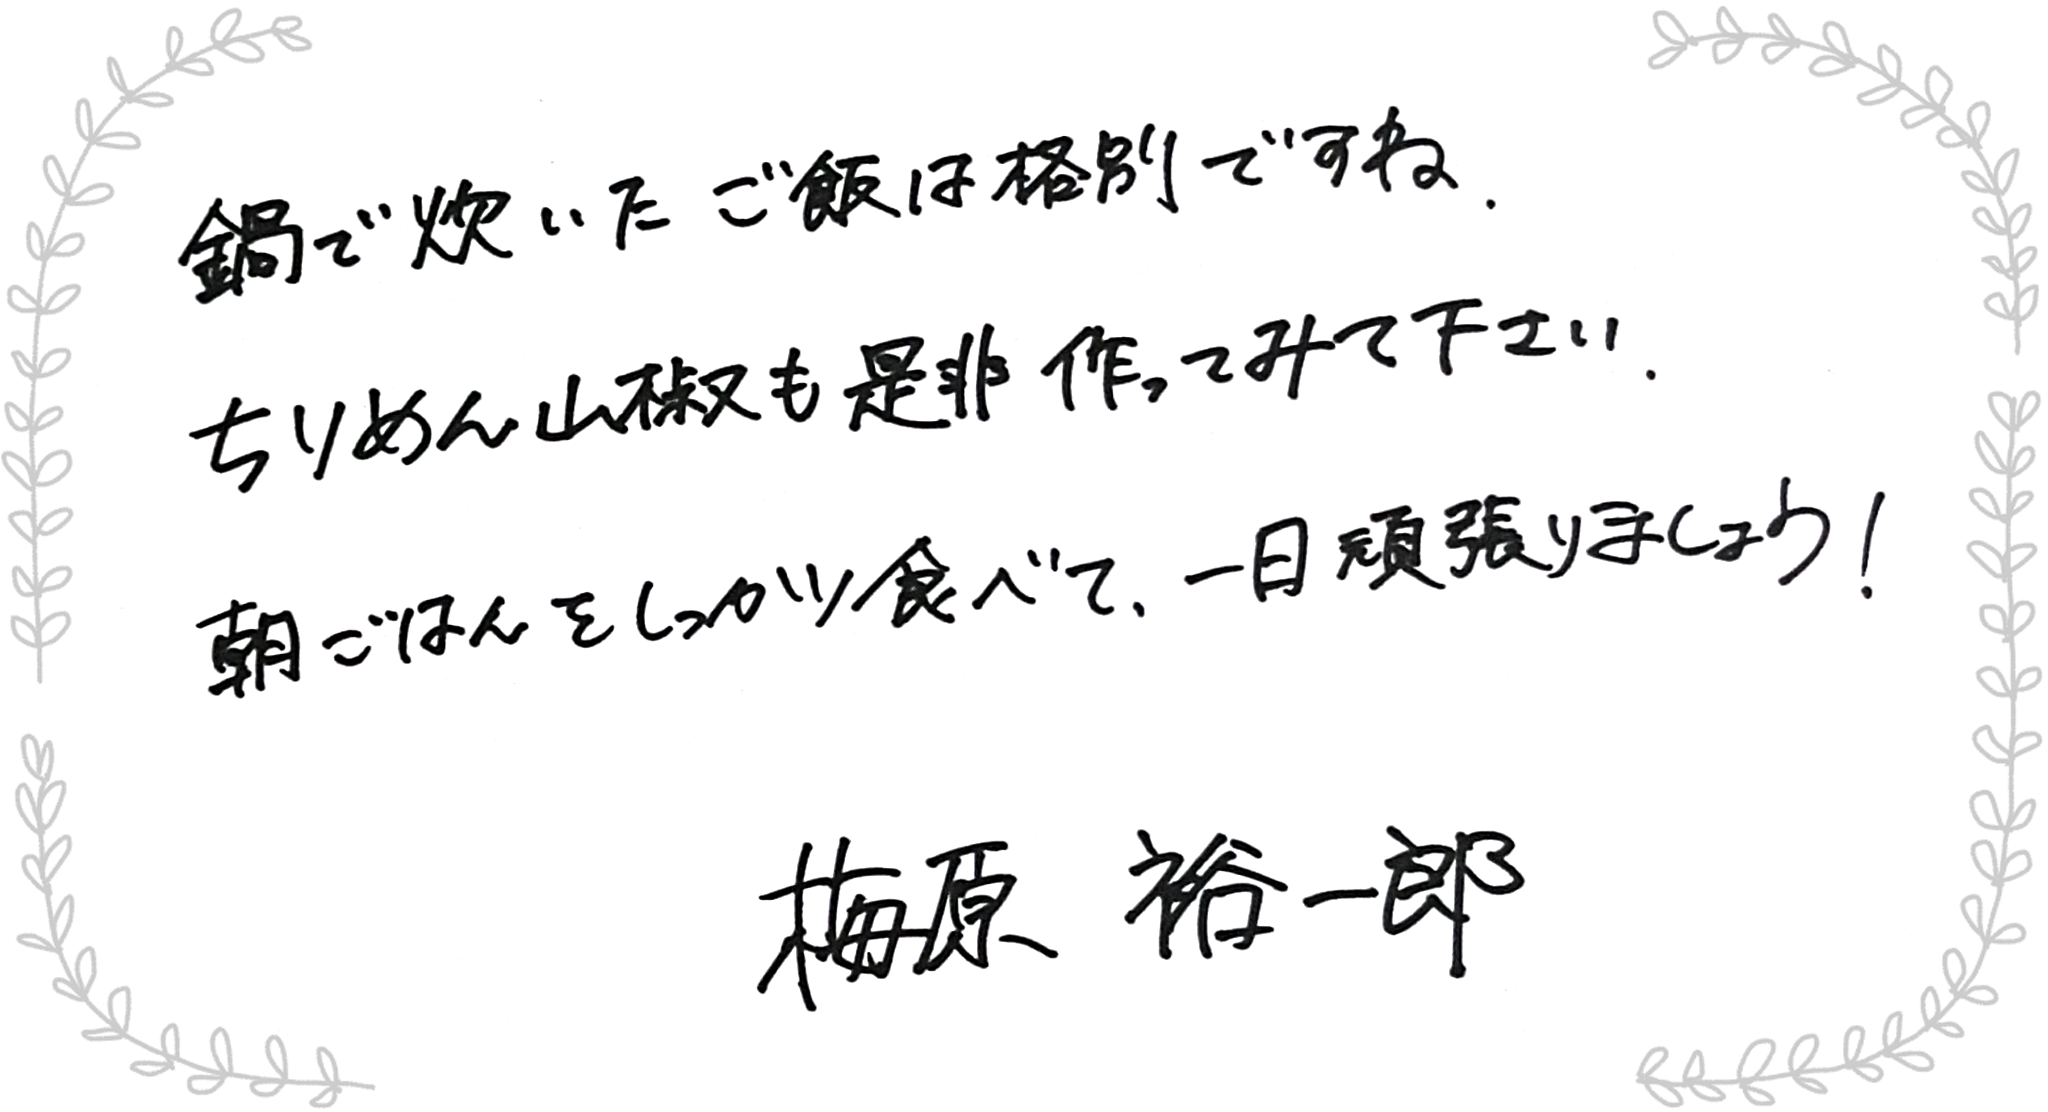 鍋で炊いたご飯は格別ですね.
ちりめん山椒も是非作ってみて下さい.
朝ごはんをしっかり食べて、一日頑張りましょう!
梅原 裕一郎